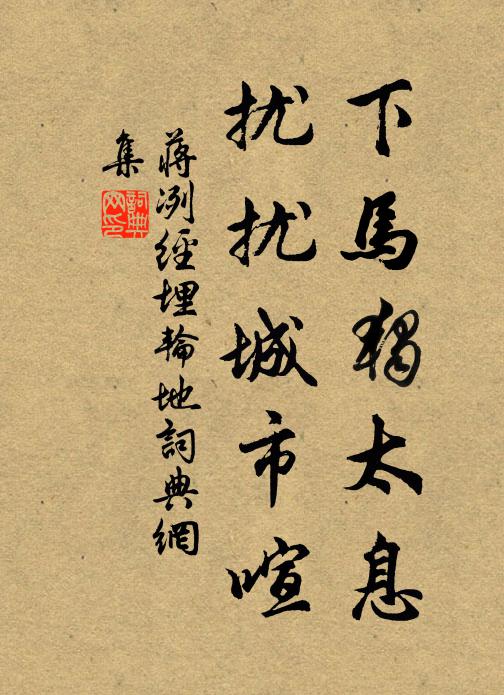 下馬獨太息
扰扰城市喧
蔣洌經埋輪地詞典網
集
詞典
网印